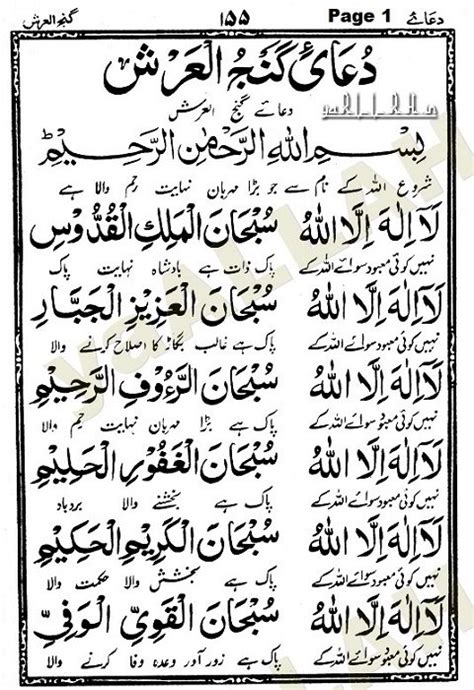 دعائے Page 1 ۱۵۵ گنج العرش
دُعَائ گَنجُ الْعَرْش
yaALLAH.in
دعائے گنج العرش
بِسْمِ اللهِ الرَّحْمٰنِ الرَّحِيْمِ ط
شروع اللہ کے نام سے جو بڑا مہربان نہایت رحم والا ہے
لَآ اِلٰهَ اِلَّا اللهُ سُبْحَانَ الْمَلِكِ الْقُدُّوْسِ
نہیں کوئی معبود سوائے اللہ کے پاک ذات ہے بادشاہ نہایت پاک
لَآ اِلٰهَ اِلَّا اللهُ سُبْحَانَ الْعَزِيْزِ الْجَبَّارِ
نہیں کوئی معبود سوائے اللہ کے پاک ہے غالب بگاڑ کا اصلاح کرنے والا
لَآ اِلٰهَ اِلَّا اللهُ سُبْحَانَ الرَّءُوْفِ الرَّحِيْمِ
نہیں کوئی معبود سوائے اللہ کے پاک ہے بڑا مہربان نہایت رحیم والا
لَآ اِلٰهَ اِلَّا اللهُ سُبْحَانَ الْغَفُوْرِ الْحَلِيْمِ
نہیں کوئی معبود سوائے اللہ کے پاک ہے بخشنے والا بردباد
لَآ اِلٰهَ اِلَّا اللهُ سُبْحَانَ الْكَرِيْمِ الْحَكِيْمِ
نہیں کوئی معبود سوائے اللہ کے پاک ہے بخشش والا حکمت والا
لَآ اِلٰهَ اِلَّا اللهُ سُبْحَانَ الْقَوِيِّ الْوَفِيِّ
نہیں کوئی معبود سوائے اللہ کے پاک ہے زور آور وعدہ وفا کرنے والا
yaALLAH